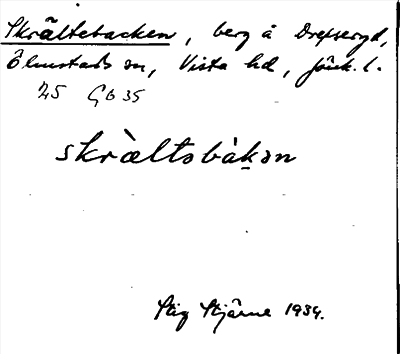 Skrältebacken, berg å Drefseryd,
Ölmstads sn, Vista hd, Jönk. l.
ÄS GB 35
skràltəbàk̠ən
Stig Stjärne 1934.